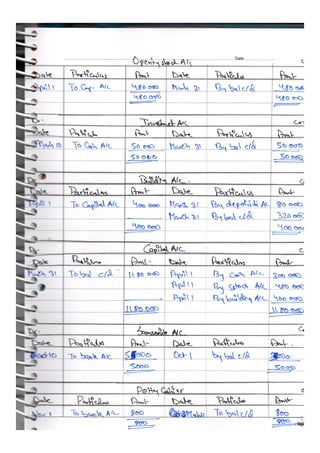 Opening stock A/c
Date
Date Particulars Amt Date Particulars Amt
April 1 To Cap. A/c 480 000 March 31 By bal c/d 480 000
480 000 480 000
Dr. Investment A/c
Date Particulars Amt Date Particulars Amt
March 10 To Cash A/c 50 000 March 31 By bal c/d 50 000
50 000 50 000
Dr. Building A/c
Date Particulars Amt Date Particulars Amt
April 1 To Capital A/c 400 000 March 31 80 000
March 31 By bal c/d 320 000
400 000 400 000
Dr. Capital A/c
Date Particulars Amt. Date Particulars Amt.
March 31 To bal c/d 11 80 000 April 1 By Cash A/c 300 000
April 1 By stock A/c 480 000
April 1 By building A/c 400 000
11 80 000 11 80 000
Dr. A/c
Date Particulars Amt Date Particulars Amt.
To bank A/c 5000 Oct 1 by bal c/d 5000
5000 5000
Petty
Date Particulars Amt Date Particulars Amt
Nov 1 To bank A/c 800 To bal c/d 800
800 800